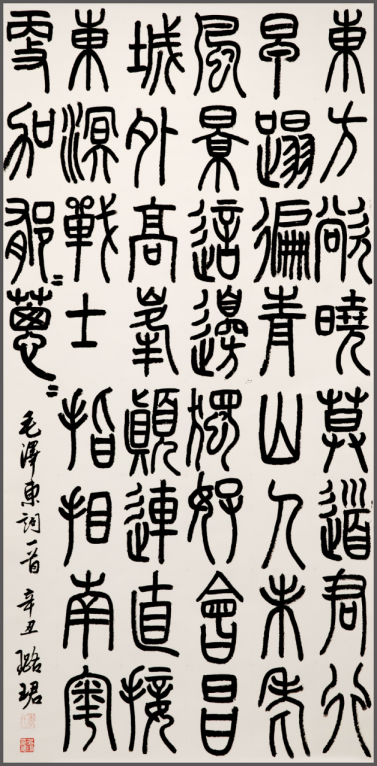 東方欲曉莫道君行
早蹋徧青山人未老
風景這邊獨好會昌
城外高峯顛連直接
東溟戰士指相南粵
更加郁〻蔥〻
毛澤東詞一首 辛丑 璐珺